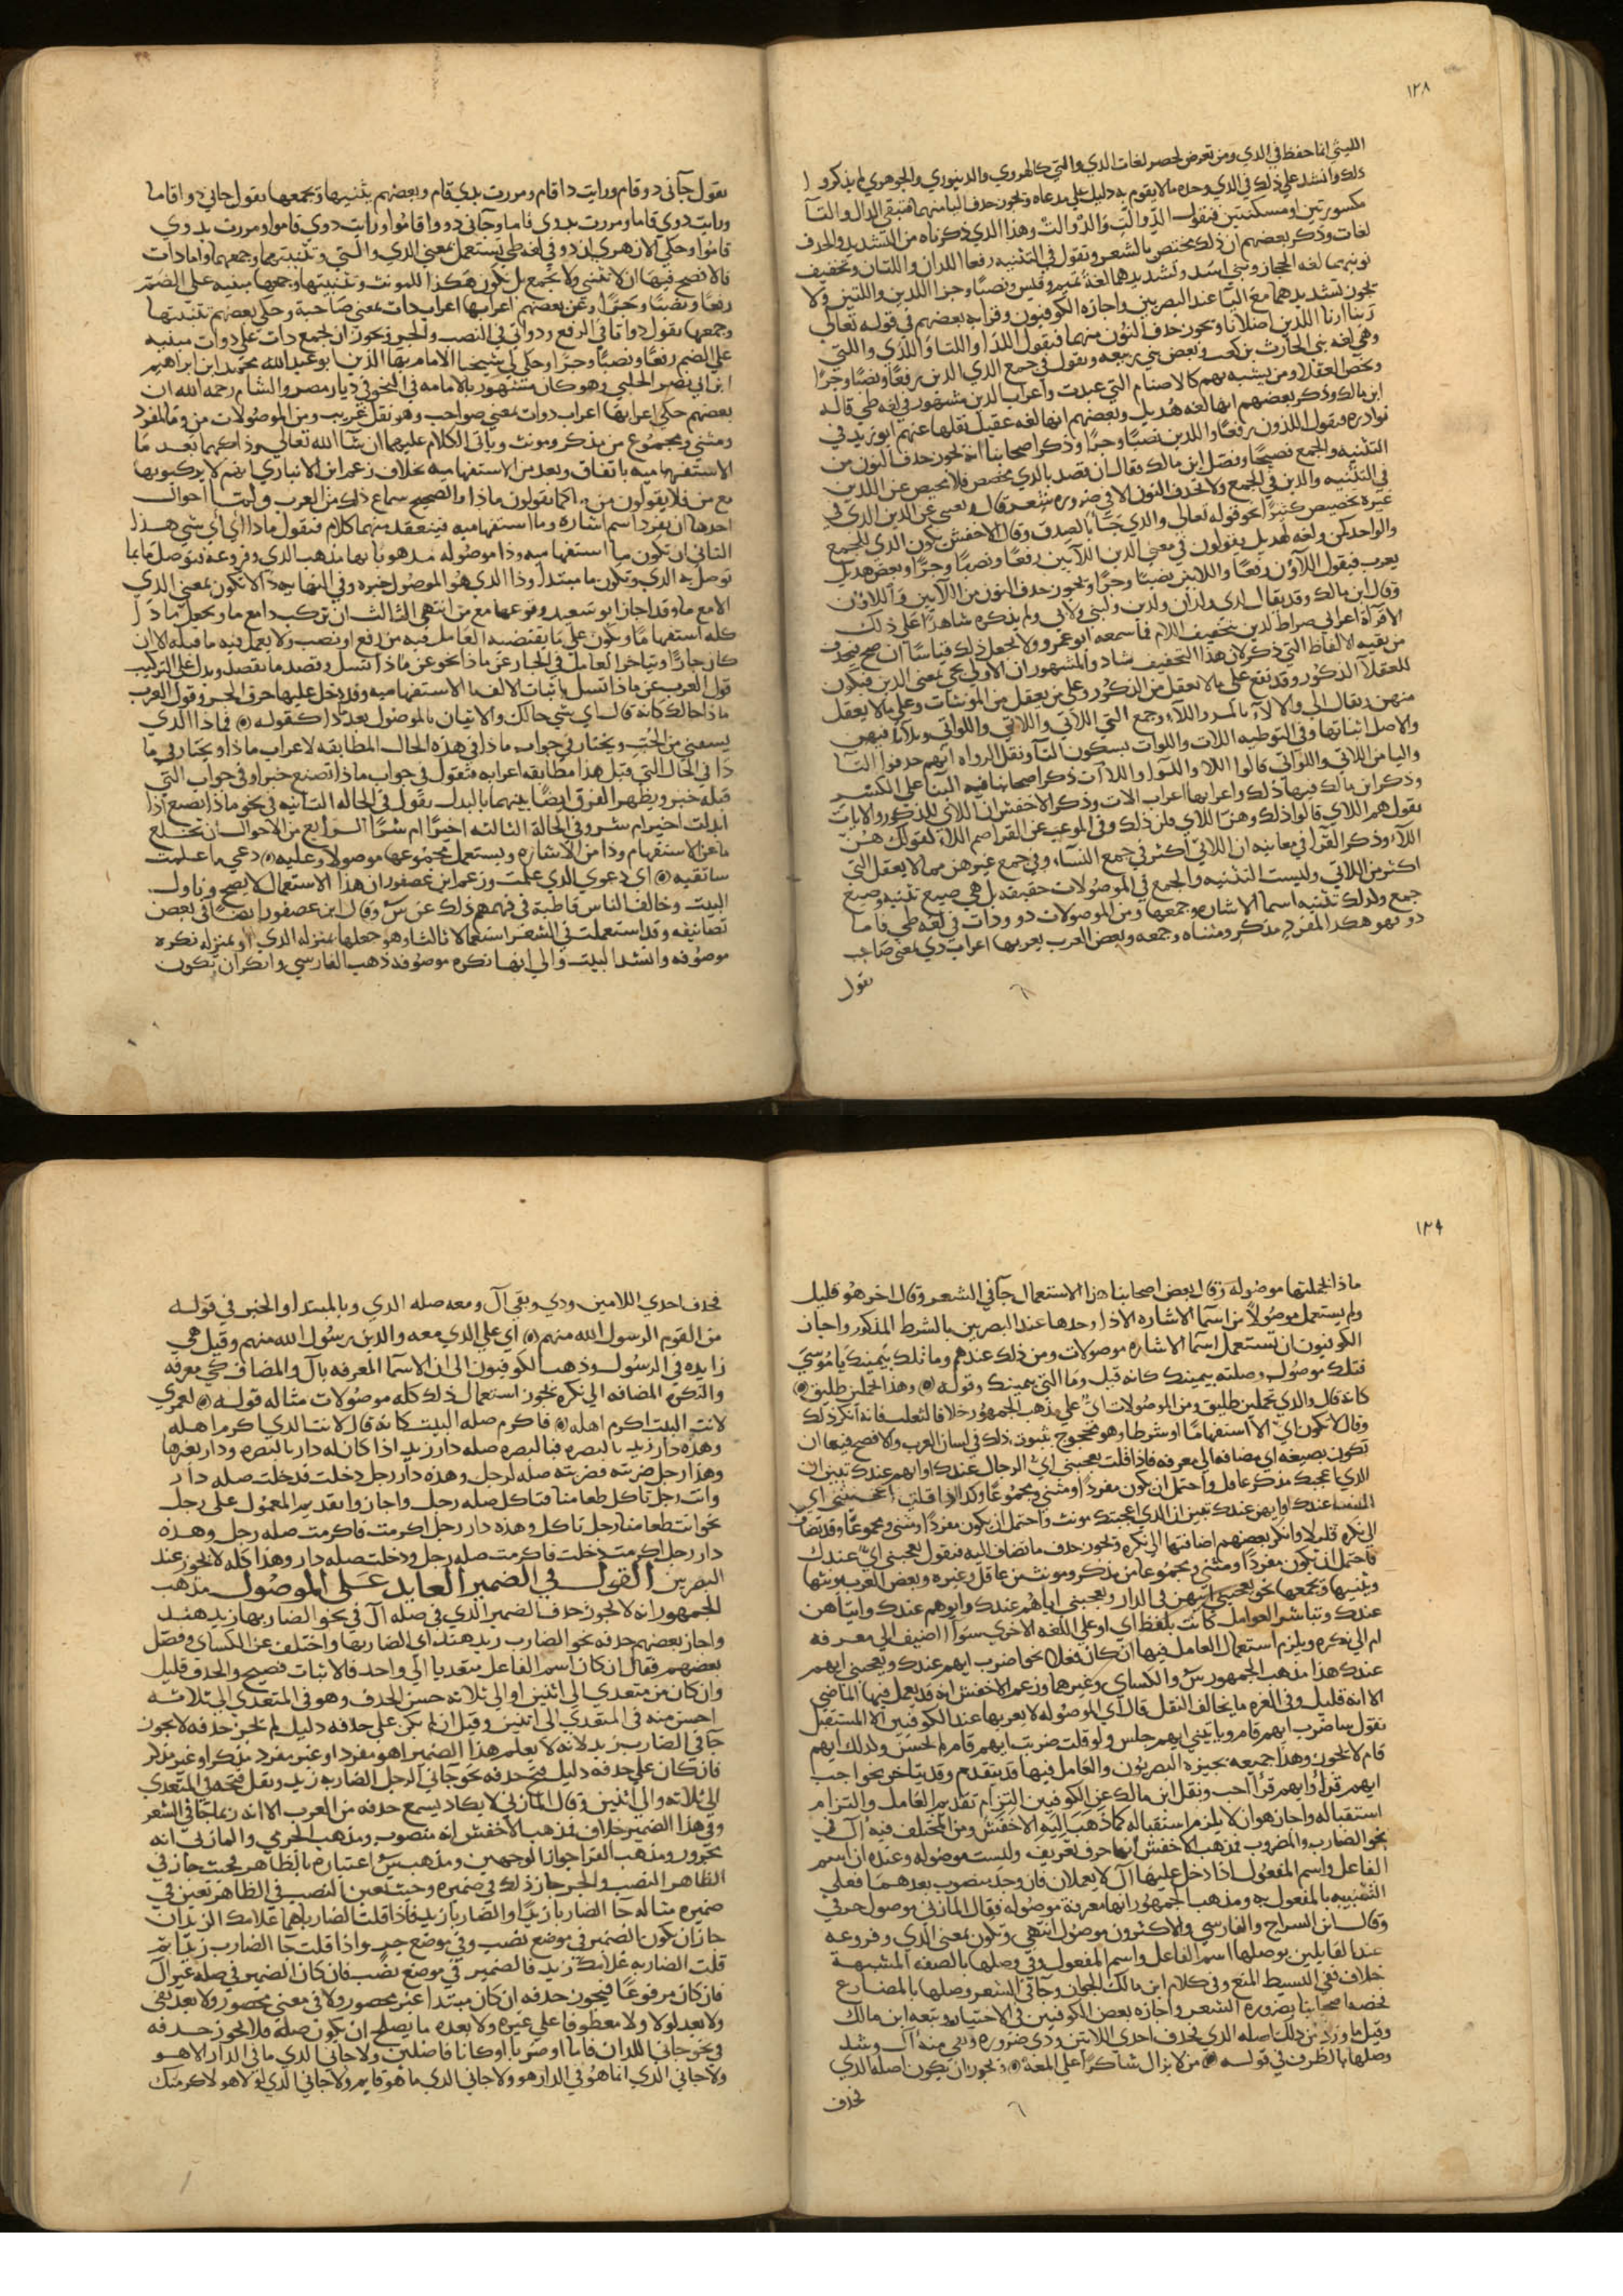 ١٢٨
الليثي انما حفظ في الذي ومن تعرض لحصر لغات الذي والتي كالهروي والدينوري والجوهري لم يذكروا
ذلك وانشد على ذلك في الذي وحده ما لا يقوم به دليل على مدعاه وتجوز حذف اليا منهما فتبقى الذال والتا
مكسورتين او مسكنتين فنقول اللذ واللت واللذ واللت وهذا الذي ذكرناه من التشديد والحذف
لغات وذكر بعضهم ان ذلك مختص بالشعر وتقول في التثنيه رفعا اللذان واللتان وتخفيف
نونيهما لغه الحجاز وبني اسد وتشديدهما لغة تميم وقيس ونصبا وجرا اللذين واللتين ولا
يجوز تشديدهما مع اليا عند البصريين واجازه الكوفيون وقرا به بعضهم في قوله تعالى
ربنا ارنا اللذين اضلانا ويجوز حذف النون منهما فيقول اللذا واللتا واللذي واللتي
وهي لغه بني الحارث بن كعب وبعض بني ربيعه وتقول في جمع الذي الذين رفعا ونصبا وجرا
وتخص العقلا ومن يشبه بهم كالاصنام التي عبدت واعراب الذين مشهور في لغه طي قاله
ابن مالك وذكر بعضهم انها لغه هذيل وبعضهم انها لغه عقيل نقلها عنهم ابو زيد في
نوادره فيقول اللذون رفعا والذين نصبا وجرا وذكر اصحابنا انه تجوز حذف النون من
التثنيه والجمع فصيحا وفصل ابن مالك فقال ان قصد بالذي مخصص فلا محيص عن اللذين
في التثنيه والذين في الجمع ولا تحذف النون الا في ضروره شعر قال ويغني عن الذين الذي في
غيره تخصيص كثيرا نحو قوله تعالى والذي جا بالصدق وقال الاخفش يكون الذي للجمع
والواحد كمن ولغه لهذيل يقولون في معنى الذين اللايين رفعا ونصبا وجرا وبعض هذيل
يعرب فيقول اللاؤن رفعا واللايين نصبا وجرا وتجوز حذف النون من اللايين واللاؤن
وقال ابن مالك وقد يقال لذي ولذان ولذين ولتي ولاتي ولم يذكره شاهدا على ذلك
الا قراة اعرابي صراط لذين بتخفيف اللام فما سمعه ابو عمرو ولا يجعل ذلك قياسا ان صح فيحذف
من بقيه الالفاظ التي ذكر لان هذا التخفيف شاذ والمشهور ان الاولى يجي بمعنى الذين فيكون
للعقلا الذكور وقد تقع على ما لا يعقل من الذكور وعلى من يعقل من المونثات وعلى ما لا يعقل
منهن ويقال الى والالاء بالمد واللاء وجمع التي اللاتي واللاتي واللواتي وبلا يا فيهن
والاصل اثباتها وفي التوطيه اللات واللوات بسكون التا ونقل الرواه انهم حذفوا التا
واليا من اللاتي واللواتي قالوا اللا واللوا واللاآت ذكر اصحابنا فيه البنا على الكسر
وذكر ابن مالك فيها ذلك واعرابها اعراب الات وذكر الاخفش ان اللاي للمذكور والاناث
تقول هم اللاي قالوا ذلك وهن اللاي قلن ذلك وفي الموعب عن الفرا صم اللاء تقولك هن
اللاء وذكر الفرا في معانيه ان اللاتي اكثر في جمع النساء وفي جمع غيرهن مما لا يعقل التي
اكثر من اللاتي وليست التثنيه والجمع في الموصولات حقيقه بل هي صيغ تثنيه وصيغ
جمع وكذلك تثنيه اسما الاشاره وجمعها ومن الموصولات ذو وذات في لغه طي فاما
ذو فهو هكذا المفرد مذكر ومثناه وجمعه وبعض العرب يعربها اعراب ذي بمعنى صاحب
تقول
تقول جاني ذو قام ورايت ذا قام ومررت بذي قام وبعضهم يثنيها ويجمعها تقول جاني ذوا قاما
ورايت ذوي قاما ومررت بذوي قاما وجاني ذووا قاموا ورايت ذوي قاموا ومررت بذوي
قاموا وحكى الازهري ان ذو في لغه طي يستعمل بمعنى الذي والتي وتثنيتهما وجمعهما واما ذات
فالافصح فيها ان لا تثنى ولا تجمع بل تكون هكذا للمونث وتثنيتها وجمعها مبنيه على الضم
رفعا ونصبا وجرا وعن بعضهم اعرابها اعراب ذات بمعنى صاحبة وحكى بعضهم تثنيتها
وجمعها تقول ذواتا في الرفع وذواتي في النصب والجر وتجوز ان تجمع ذات على ذوات مبنيه
على الضم رفعا ونصبا وجرا وحكى لي شيخنا الامام بها الدين ابو عبد الله محمد بن ابراهيم
ابن ابي نصر الحلبي وهو كان مشهورا بالامامه في النحو في ديار مصر والشام رحمه الله ان
بعضهم حكى اعرابها اعراب ذوات بمعنى صواحب وهو نقل غريب ومن الموصولات من وما لمفرد
ومثنى ومجموع من مذكر ومونث وياتي الكلام عليهما ان شا الله تعالى وذا كهما بعد ما
الاستفهاميه باتفاق وبعد من الاستفهاميه بخلاف زعم ابن الانباري انهم لا يركبونها
مع من فلا يقولون من ذا كما يقولون ماذا والصحيح سماع ذلك من العرب ولها احوال
احدها ان يفرد اسم اشاره وما استفهاميه فينعقد منهما كلام فنقول ماذا اي اي شي هذا
الثاني ان تكون ما استفهاميه وذا موصوله مذهوبا بها مذهب الذي وفروعه فتوصل بما
توصل به الذي وتكون ما مبتدا وذا الذي هو الموصول خبره وفي النهايه ذا لا تكون بمعنى الذي
الا مع ما وقد اجاز ابو سعيد وقوعها مع من انتهى الثالث ان تركب ذا مع ما ويجعل ماذا
كله استفهاما ويكون على ما يقتضيه العامل فيه من رفع او نصب ولا يعمل فيه ما قبله الا ان
كان جارا ويتاخر العامل في الخبار عن ماذا نحو عن ماذا تسل وقصد ما يقصد ويدل على التركيب
قول العرب عن ماذا تسل باثبات الالف ما الاستفهاميه وقد يدخل عليها حرف الجر وقول العرب
ماذا حالك كانه قال اي شي حالك والاتيان بالموصول بعد ذا كقوله ۞ فماذا الذي
يسعني من الحب ويختار في جواب ماذا في هذه الحال المطابقه لاعراب ماذا ويختار في ما
ذا في الحال التي قبل هذا مطابقه اعرابه فتقول في جواب ماذا تصنع خبرا وفي جواب التي
قبله خبر ويظهر الفرق ايضا بينهما بالبدل تقول في الحاله الثانيه في نحو ماذا تصنع اذا
ابدلت اخير ام شر وفي الحالة الثالثه اخيرا ام شرا الرابع من الاحوال ان تخلع
ما عن الاستفهام وذا من الاشاره ويستعمل مجموعها موصولا وعليه ۞ دعي ماذا علمت
ساتقيه ۞ اي دعوي الذي علمت وزعم ابن عصفور ان هذا الاستعمال لا يصح وتاول
البيت وخالف الناس قاطبة في فهمهم ذلك عن س وقال ابن عصفور ايضا في بعض
تصانيفه وقد استعملت في الشعر استعمالا ثالثا وهو جعلها بمنزله الذي او بمنزله نكره
موصوفه وانشد البيت والى انها نكره موصوفه ذهب الفارسي وانكر ان تكون
١٢٩
ماذا بجملتها موصوله وقال بعض اصحابنا هذا الاستعمال جا في الشعر وقال اخر هو قليل
ولم يستعمل موصولا من اسما الاشاره الا ذا وحدها عند البصريين بالشرط المذكور واجاز
الكوفيون ان تستعمل اسما الاشاره موصولات ومن ذلك عندهم وما تلك بيمينك يا موسى
فتلك موصول وصلته بيمينك كانه قيل وما التي بيمينك وقوله ۞ وهذا تحملين طليق ۞
كانه قال والذي تحملين طليق ومن الموصولات اي على مذهب الجمهور خلافا لثعلب فانه انكر ذلك
وقال لا تكون اي الا استفهاما او شرطا وهو محجوج بثبوت ذلك في لسان العرب والافصح فيها ان
تكون بصيغه اي مضافه الى معرفه فاذا قلت يعجبني اي الرجال عندك او ايهم عندك تبين ان
الذي اعجبك مذكر عاقل واحتمل ان يكون مفردا ومثنى ومجموعا وكذا اذا قلت اعجبتني اي
النسا عندك او ايهن عندك تبين ان الذي اعجبتك مونث واحتمل ان يكون مفردا ومثنى ومجموعا وقد تضاف
الى نكره قليلا وانكر بعضهم اضافتها الى نكره وتجوز حذف ما تضاف اليه فنقول يعجبني اي عندك
فاحتمل ان يكون مفردا ومثنى ومجموعا من مذكر ومونث من عاقل وغيره وبعض العرب يونثها
ويثنيها ويجمعها نحو يعجبني ايتهن في الدار ويعجبني اياهم عندك وايوهم عندك وايتاهن
عندك وتباشر العوامل كانت بلفظ اي او على اللغه الاخرى سوا اضيف الى معرفه
ام الى نكره ويلزم استعمال العامل فيها ان كان فعلا نحو اضرب ايهم عندك ويعجبني ايهم
عندك هذا مذهب الجمهور س والكساي وغيرهما وزعم الاخفش انه قد يعمل فيها الماضي
الا انه قليل وفي الغره ما يخالف النقل قال اي الموصوله لا يعربها عند الكوفيين الا المستقبل
تقول ساضرب ايهم قام وياتيني ايهم جلس ولو قلت ضربت ايهم قام لم تحسن وكذلك ايهم
قام لا تجوز وهذا جميعه يجيزه البصريون والعامل فيها قد يتقدم وقد يتاخر نحو احب
ايهم قرا وايهم قرا احب ونقل ابن مالك عن الكوفيين التزام تقديم العامل والتزام
استقباله واجاز هو ان لا يلزم استقباله كما ذهب اليه الاخفش ومن المختلف فيه ال في
نحو الضارب والمضروب فذهب الاخفش انها حرف تعريف وليست موصوله وعنده ان اسم
الفاعل واسم المفعول اذا دخل عليها ال لا يعملان فان وجد منصوب بعدهما فعلى
التشبيه بالمفعول به ومذهب الجمهور انها معرفة موصوله فقال المازني موصول حرفي
وقال ابن السراج والفارسي والاكثرون موصول اسمي وتكون بمعنى الذي وفروعه
عند القايلين بوصلها اسم الفاعل واسم المفعول وفي وصلها بالصفه المشبهة
خلاف ففي البسيط المنع وفي كلام ابن مالك الجواز وجا في الشعر وصلها بالمضارع
نخصه اصحابنا بضروره الشعر واجازه بعض الكوفيين في الاختيار وتبعه ابن مالك
وقيل ما ورد من ذلك اصله الذي فحذف احدى اللامين وذي ضروره وبقي منه ال وشذ
وصلها بالظرف في قوله ۞ من لا يزال شاكرا على المعه ۞ وتجوز ان يكون اصله الذي
فحذف
فحذف احدى اللامين وذي وبقي ال ومعه صله الذي وبالمبتدا والخبر في قوله
من القوم الرسول الله منهم ۞ اي على الذي معه والذين رسول الله منهم وقيل هي
زايده في الرسول وذهب الكوفيون الى ان الاسما المعرفه بال والمضاف الى معرفه
والنكره المضافه الى نكره تجوز استعمال ذلك كله موصولات مثاله قوله ۞ لعمري
لانت البيت اكرم اهله ۞ فاكرم صله البيت كانه قال لانت الذي اكرم اهله
وهذه دار زيد بالبصره فبالبصره صله دار زيد اذا كان له دار بالبصره ودار بغيرها
وهذا رجل ضربته فضربته صله لرجل وهذه دار رجل دخلت فدخلت صله دار
وانت رجل تاكل طعامنا فتاكل صله رجل واجازوا تقديم المعمول على رجل
نحو انت طعامنا رجل تاكل وهذه دار رجل اكرمت فاكرمت صله رجل وهذه
دار رجل اكرمت دخلت فاكرمت صله رجل ودخلت صله دار وهذا كله لا تجوز عند
البصريين القول في الضمير العايد على الموصول مذهب
الجمهور انه لا تجوز حذف الضمير الذي في صله ال في نحو الضاربها زيد هند
واجاز بعضهم حذفه نحو الضارب زيد هند اي الضاربها واختلف عن الكساي وفصل
بعضهم فقال ان كان اسم الفاعل متعديا الى واحد فالاثبات فصيح والحذف قليل
وان كان من متعدي الى اثنين او الى ثلاثه حسن الحذف وهو في المتعدي الى ثلاثه
احسن منه في المتعدي الى اثنين وقيل ان لم يكن على حذفه دليل لم يجز حذفه لا يجوز
جا في الضارب زيد لانه لا يعلم هذا الضمير اهو مفرد او غير مفرد مذكر او غير مذكر
فان كان على حذفه دليل قبح حذفه نحو جاني الرجل الضاربه زيد ويقل قبحه في المتعدي
الى ثلاثه والى اثنين وقال المازني لا يكاد يسمع حذفه من العرب الا انه ربما جا في الشعر
وفي هذا الضمير خلاف فمذهب الاخفش انه منصوب ومذهب الجرمي والمازني انه
مجرور ومذهب الفرا جواز الوجهين ومذهب س اعتباره بالظاهر فحيث جاز في
الظاهر النصب والجر جاز ذلك في ضميره وحيث تعين النصب في الظاهر تعين في
ضميره مثاله جا الضاربا زيدا والضاربا زيد فاذا قلت الضارباهما غلامك الزيدان
جاز ان يكون الضمير في موضع نصب وفي موضع جر واذا قلت جا الضارب زيدا ثم
قلت الضاربه غلامك زيد فالضمير في موضع نصب فان كان الضمير في صله غير ال
فان كان مرفوعا فيجوز حذفه ان كان مبتدا غير محصور ولا في معنى محصور ولا بعد نفي
ولا بعد لولا ولا معطوفا على غيره ولا بعده ما يصلح ان يكون صله فلا تجوز حذفه
في نحو جاني اللذان قاما او ضربا او كانا فاضلين ولا جاني الذي ما في الدار الا هو
ولا جاني الذي انما هو في الدار هو ولا جاني الذي ما هو قايم ولا جاني الذي لولا هو لاكرمتك